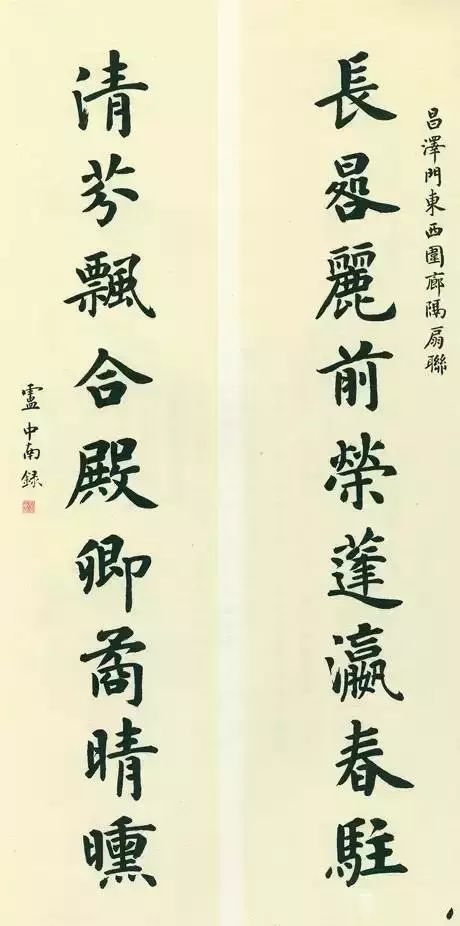 昌澤門東西圍廊隔扇聯
長晷麗前榮蓬瀛春駐
清芬飄合殿卿矞晴曛
盧中南録